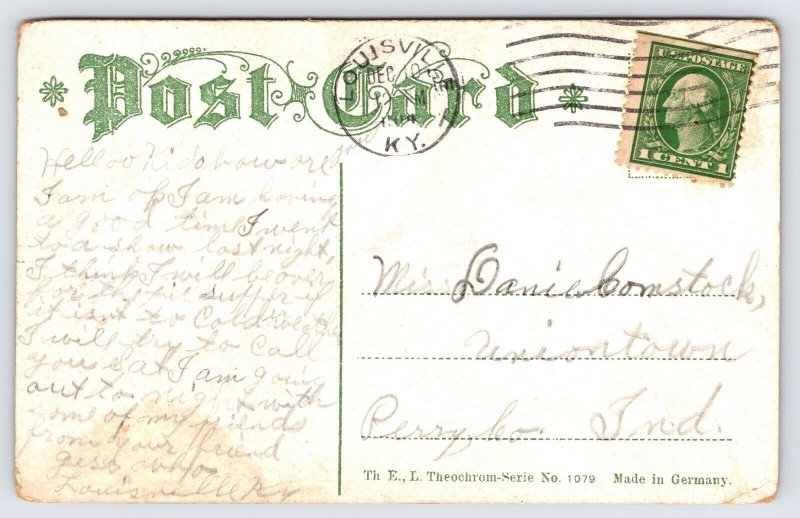 Post Card
LOUISVILLE
DEC 10
KY.
U.S. POSTAGE
1 CENT 1
Helloo Kido how are you
I am of I am having
a good time I went
to a show last night,
I think I will be over
for the pie supper if
it isnt to cold weather
I will try to call
you Sat I am going
out to night with
some of my friends
from your friend
gess who
Louisville Ky
Miss Danie Comstock,
Uniontown
Perry Co. Ind.
Th E., L. Theochrom-Serie No. 1079 Made in Germany.